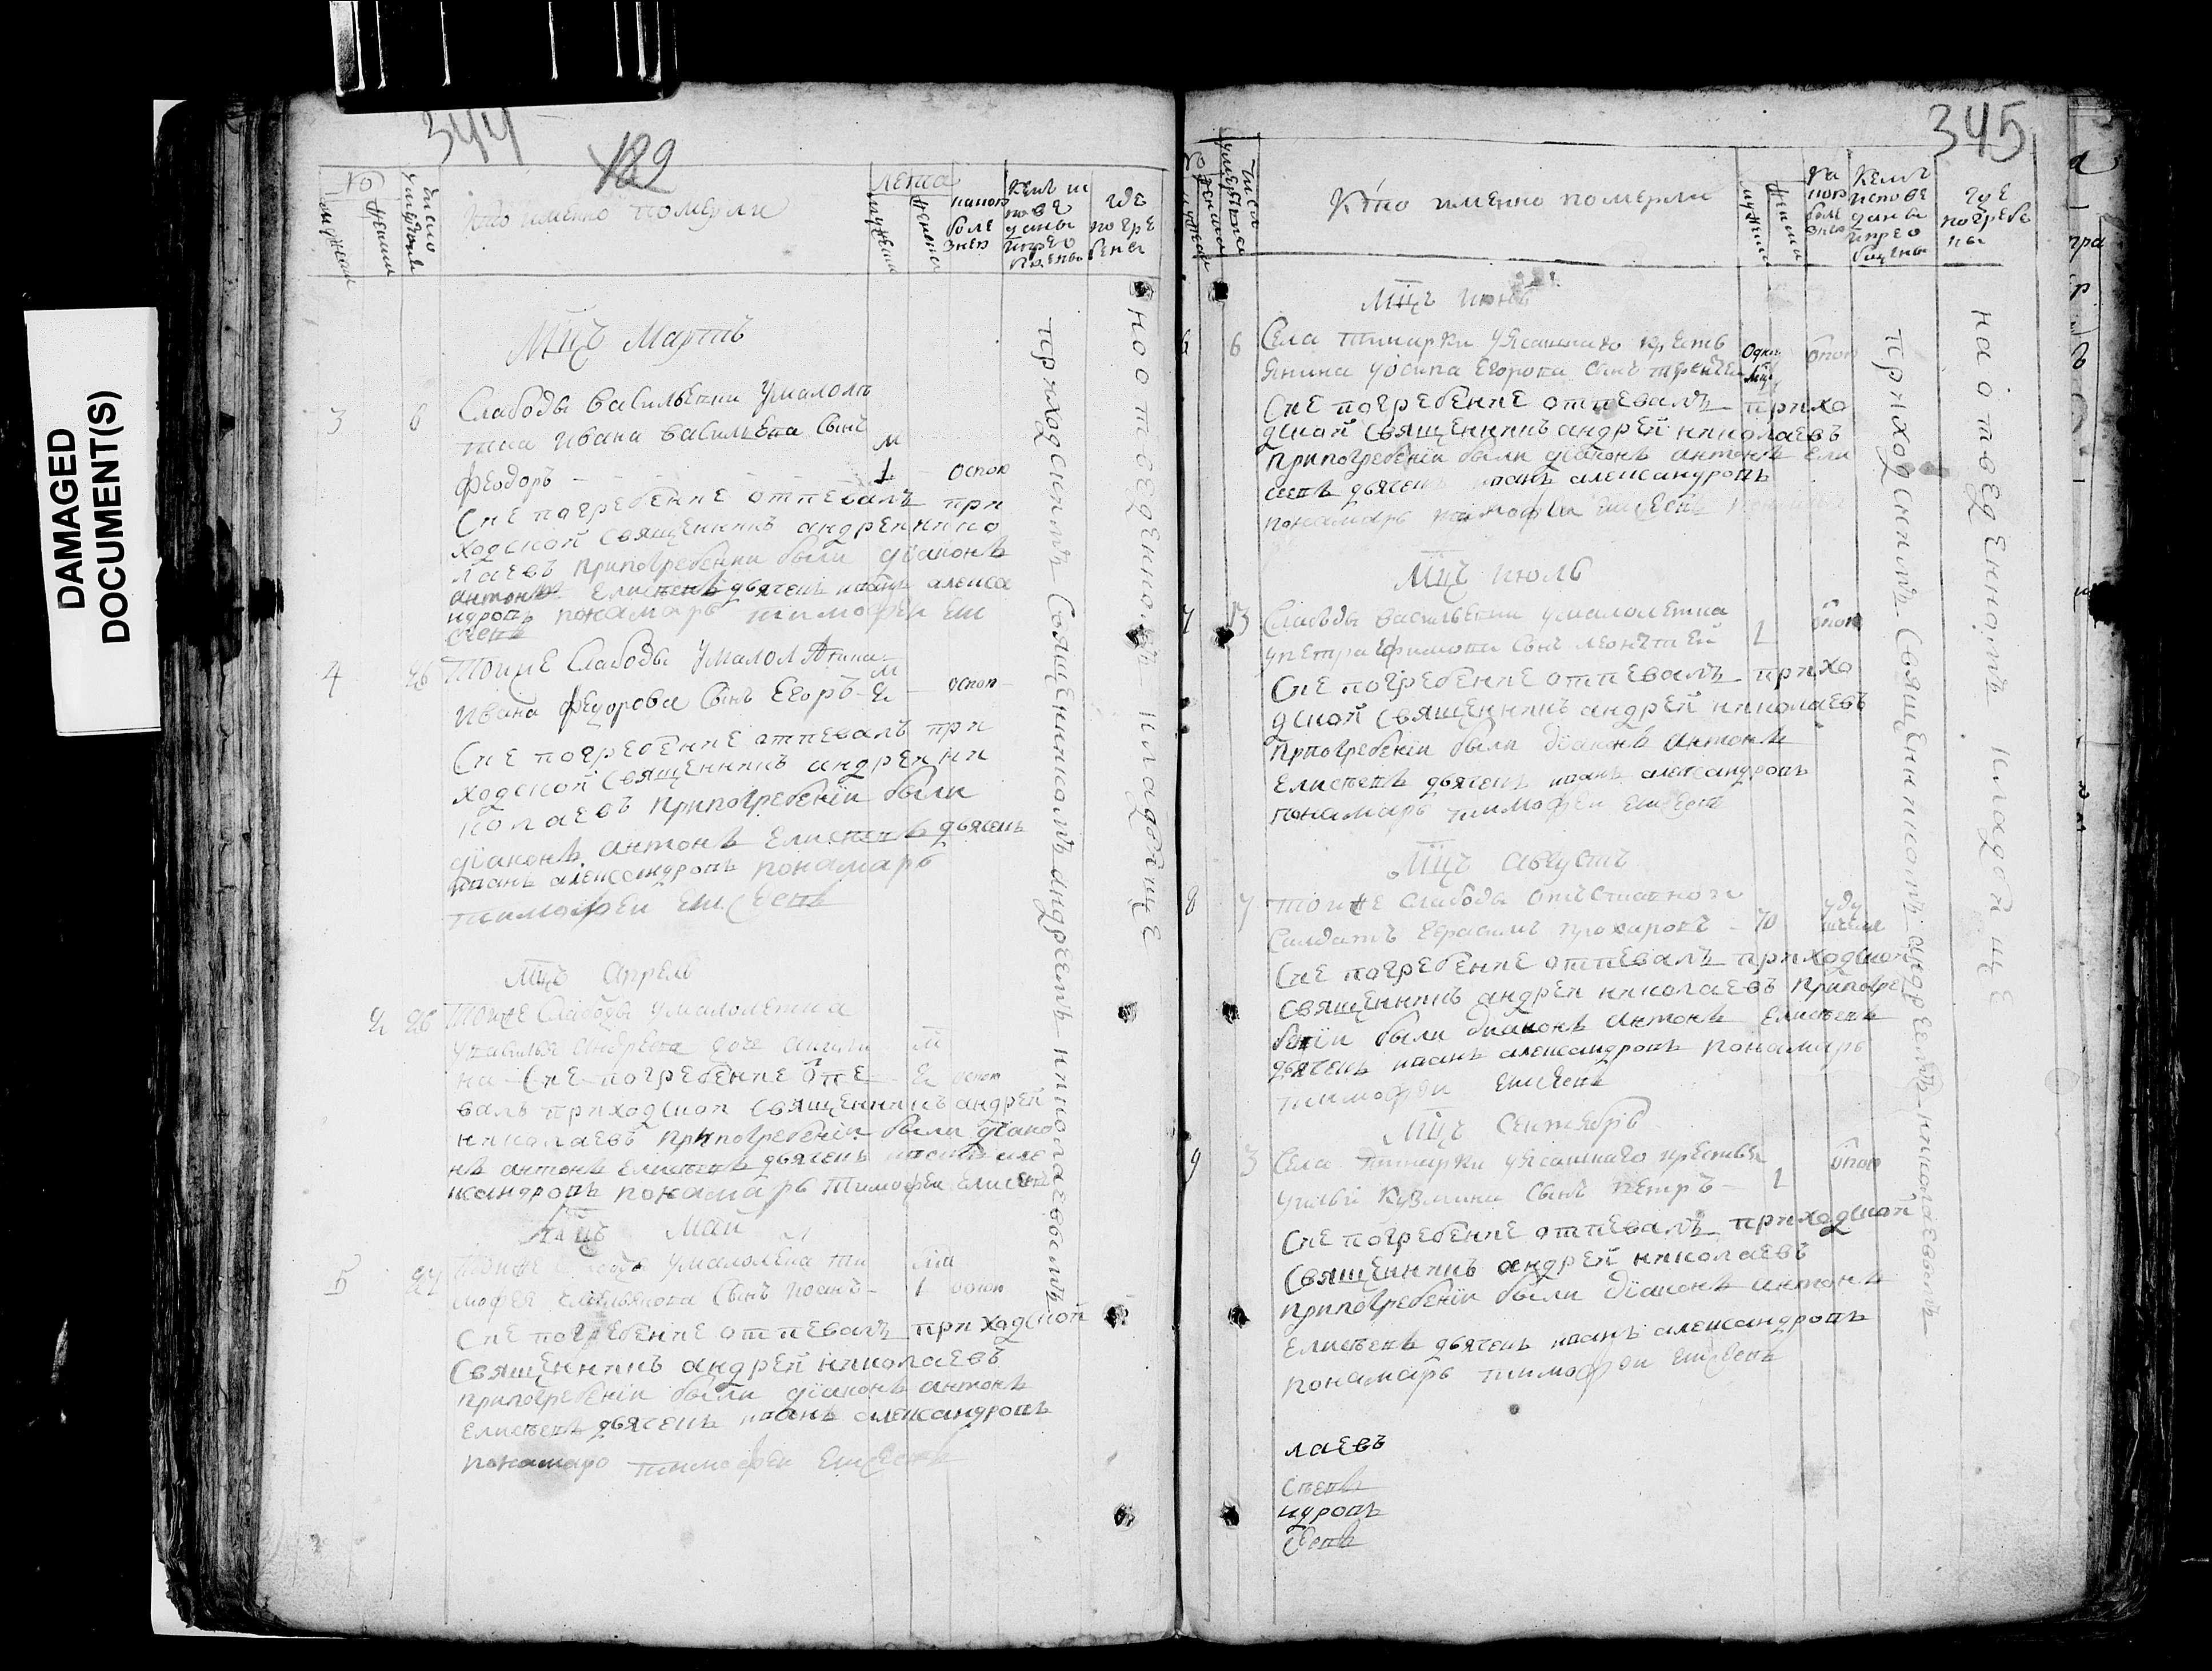 DAMAGED
DOCUMENT(S)
344
182
No
мужеска
женска
число
умертвия
Кто именно померли
Лета
мужеска
женска
какою
боле
знею
Кем ис
пове
даны
и прео
где
погре
бены
Мцъ Мартъ
3
6
Слабоды Васильевки у малолѣ
тка Ивана Васильева сынъ
Феодоръ
м
1
оспою
Сие погребение отпевалъ при
ходской священникъ андрей нико
лаевъ при погребении были дїаконъ
антонъ Елисеевъ дьячекъ иванъ алекса
ндровъ понамарь тимофеи Ели
сеевъ
4
26
Тоиже Слабоды у малолѣтка
Ивана Федорова сынъ Егоръ
м
2
оспою
Сие погребение отпевалъ при
ходской священникъ андреи ни
колаевъ при погребенїи были
дїаконъ антонъ Елисеевъ дьячекъ
иванъ александровъ понамарь
тимофеи Елисеевъ
Мцъ Апрель
2
26
Тоиже Слабоды у малолетка
у василья андреева дочь акули
на Сие погребение отпе
м
2
оспою
валъ приходской священникъ андрей
николаевъ при погребенїи были дїако
нъ антонъ Елисеевъ дьячекъ иванъ але
ксандровъ понамарь тимофеи Елисеевъ
Мцъ Май
5
27
Тоиже Слабоды у малолетка ти
мофея сынъ Иванъ
1
оспою
Сие погребение отпевалъ приходской
священникъ андрей николаевъ
при погребенїи были дїаконъ антонъ
Елисеевъ дьячекъ иванъ александровъ
понамарь тимофеи Елисеевъ
приходскимъ священникомъ андреемъ николаевымъ
на отведенномъ кладбище
345
No
мужеска
женска
число
умертвия
Кто именно померли
мужеска
женска
Ка
кою
боле
знею
Кемъ
испове
даны
и прео
бщены
где
погребе
ны
Мцъ июнь
6
6
Села Тимирки у ясашнаго кресть
янина Иосипа Егорова сынъ терентеи
одного
оспою
Сие погребение отпевалъ прихо
дской священникъ андрей николаевъ
при погребенїи были дїаконъ антонъ Ели
сеевъ дьячекъ иванъ александровъ
понамарь тимофеи Елисеевъ
Мцъ июль
7
13
Слабоды Васильевки у малолетка
у петра Ефимова сынъ леонтей
1
оспою
Сие погребение отпевалъ прихо
дской священникъ андрей николаевъ
при погребенїи были дїаконъ антонъ
Елисеевъ дьячекъ иванъ александровъ
понамарь тимофеи Елисеевъ
Мцъ августъ
8
7
Тоиже слабоды отъставной
Салдатъ Герасимъ прохаровъ
70
уду
шьемъ
Сие погребение отпевалъ приходской
священникъ андреи николаевъ при погре
бенїи были дїаконъ антонъ Елисеевъ
дьячекъ иванъ александровъ понамарь
тимофеи Елисеевъ
Мцъ Сентябрь
9
3
Села Тимирки у ясашнаго крестья
у ильи Кузмина сынъ Петръ
1
оспою
Сие погребение отпевалъ приходской
священникъ андрей николаевъ
при погребенїи были дїаконъ антонъ
Елисеевъ дьячекъ иванъ александровъ
понамарь тимофеи Елисеевъ
приходскимъ священникомъ андреемъ николаевымъ
на отведенномъ кладбище
лаевъ
сеевъ
ндровъ
сеевъ